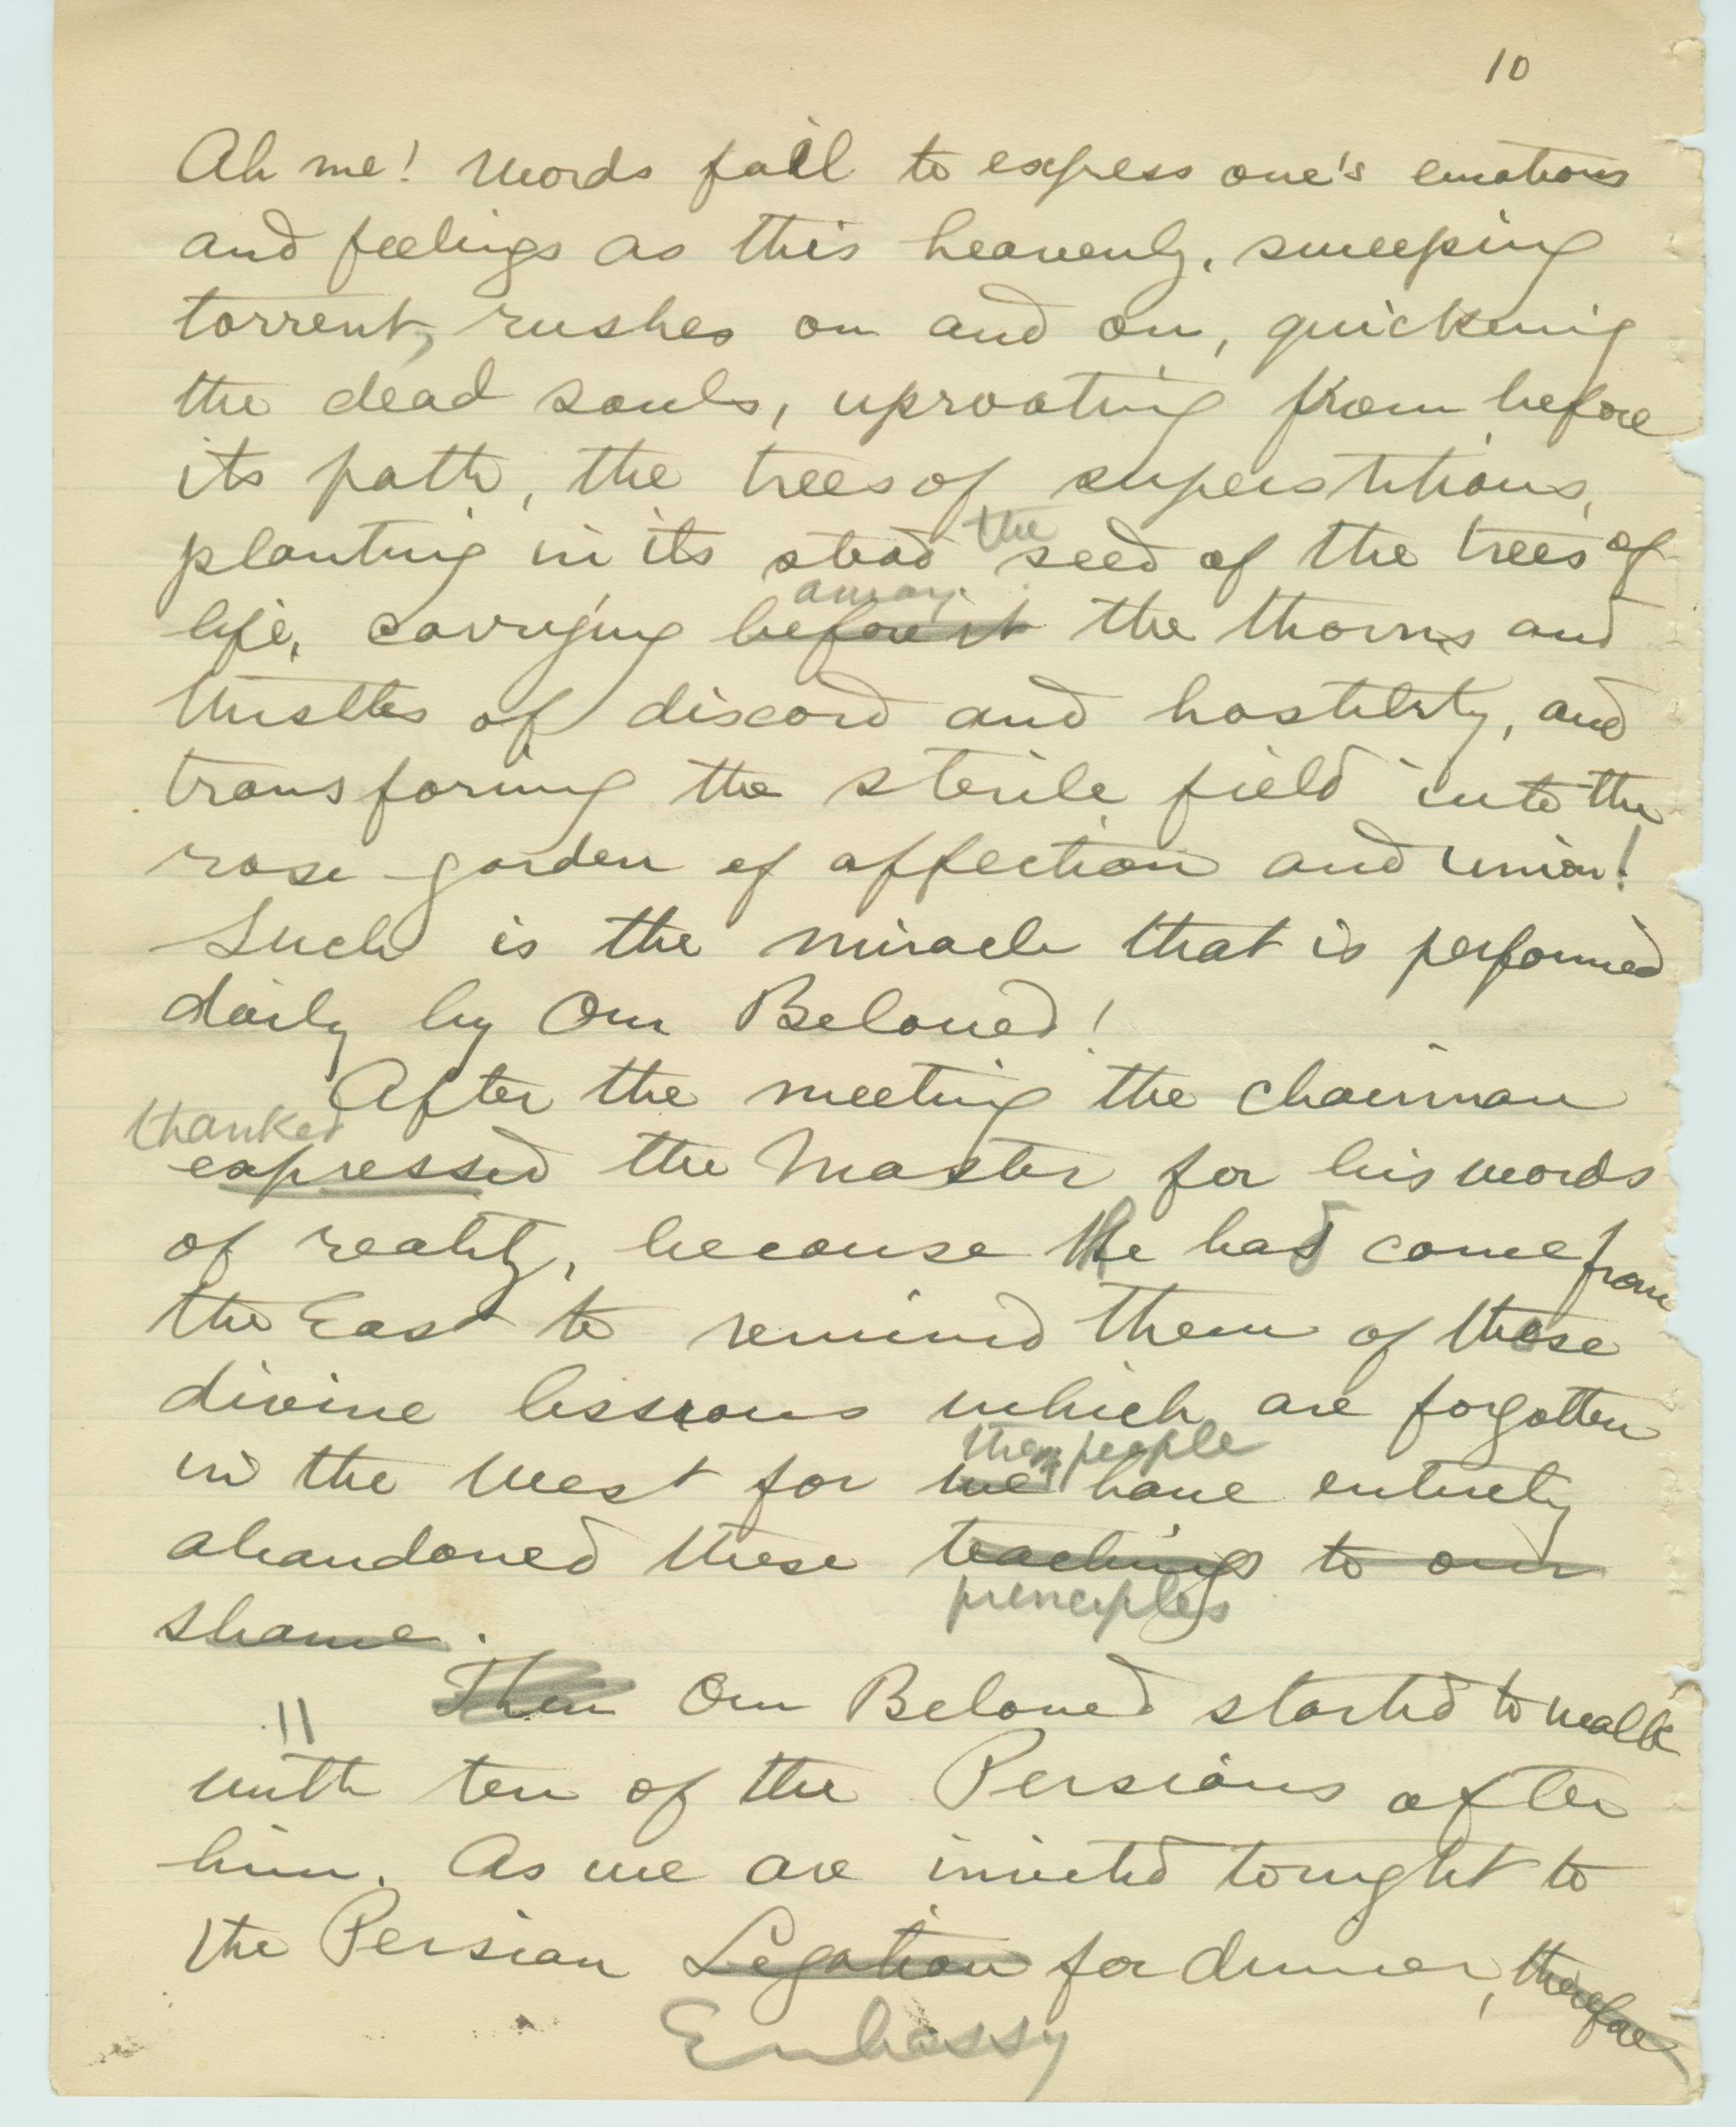 10
Ah me! Words fail to express one's emotions
and feelings as this heavenly, sweeping
torrent, rushes on and on, quickening
the dead souls, uprooting from before
its path, the trees of superstitions,
planting in its stead the seed of the trees of
life, carrying before it away the thorns and
thistles of discord and hostility, and
transforming the sterile field into the
rose garden of affection and union!
Such is the miracle that is performed
daily by Our Beloved!
After the meeting the chairman
thanked
expressed the Master for his words
of reality, because He had come from
the East to remind them of these
divine lessons which are forgotten
the people
in the West for we have entirely
abandoned these teachings to our
principles
shame.
Then Our Beloved started to walk
11
with ten of the Persians after
him. As we are invited tonight to
the Persian Legation for dinner, therefore
Embassy